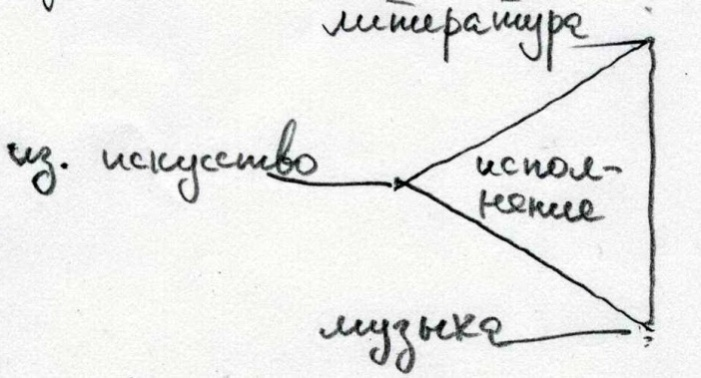 литература
из. искусство
испол-
нение
музыка